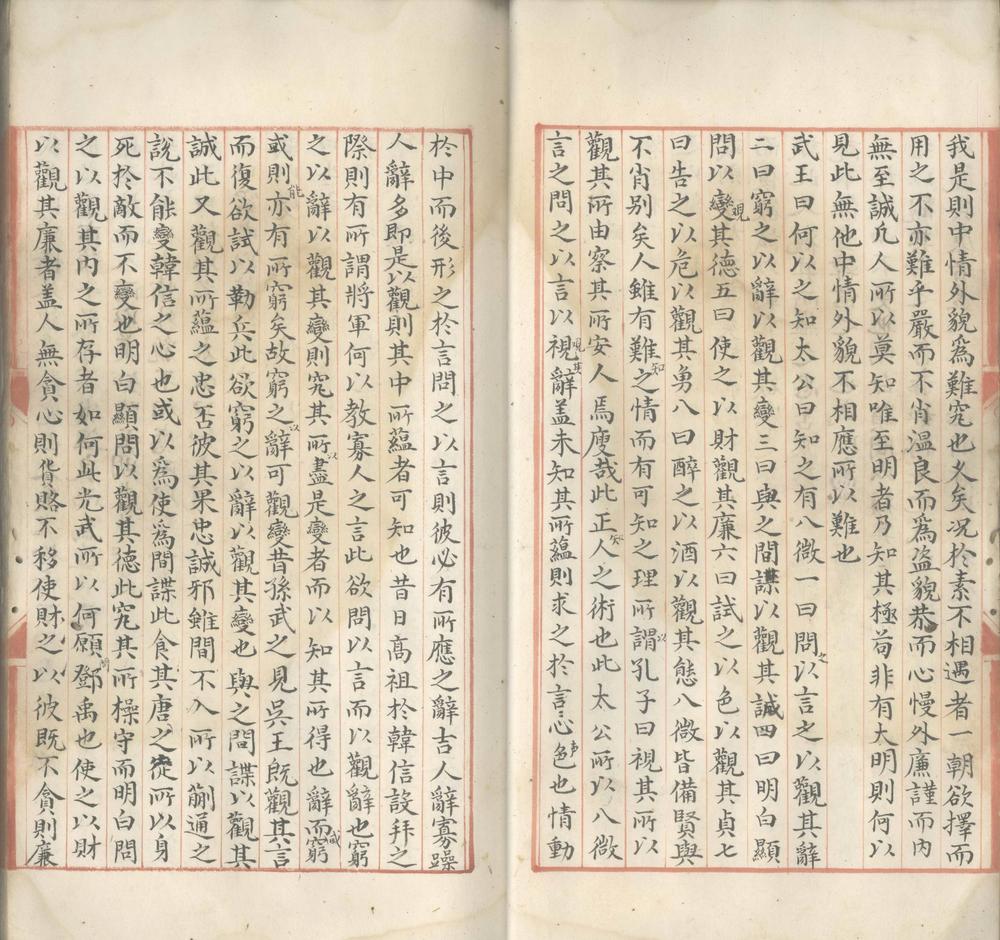 我是則中情外貌爲難究也乆矣况於素不相遇者一朝欲擇而
用之不亦難乎嚴而不肖溫良而爲盜貌恭而心慢外廉謹而內
無至誠凢人所以莫知唯至明者乃知其極苟非有大明則何以
見此無他中情外貌不相應所以難也
武王曰何以之知太公曰知之有八徵一曰問以言之以觀其辭
二曰窮之以辭以觀其變三曰與之間諜以觀其誠四曰明白顯
問以變其德五曰使之以財觀其廉六曰試之以色以觀其貞七
曰告之以危以觀其勇八曰醉之以酒以觀其態八徵皆備賢與
不肖別矣人雖有難之情而有可知之理所謂孔子曰視其所以
觀其所由察其所安人焉廋哉此正人之術也此太公所以八徵
言之問之以言以視辭盖未知其所蘊則求之於言心色也情動
於中而後形之於言問之以言則彼必有所應之辭吉人辭寡躁
人辭多即是以觀則其中所蘊者可知也昔日高祖於韓信設拜之
際則有所謂將軍何以教寡人之言此欲問以言而以觀辭也窮
之以辭以觀其變則究其所盡是變者而以知其所得也辭而窮
或則亦有所窮矣故窮之辭可觀變昔孫武之見吳王旣觀其言
而復欲試以勒兵此欲窮之以辭以觀其變也與之間諜以觀其
誠此又觀其所蘊之忠否彼其果忠誠邪雖間不入所以蒯通之
說不能變韓信之心也或以爲使爲間諜此食其唐之從所以身
死於敵而不變也明白顯問以觀其德此究其所操守而明白問
之以觀其內之所存者如何此光武所以何願鄧禹也使之以財
以觀其廉者盖人無貪心則貨賂不移使財之以彼既不貪則廉